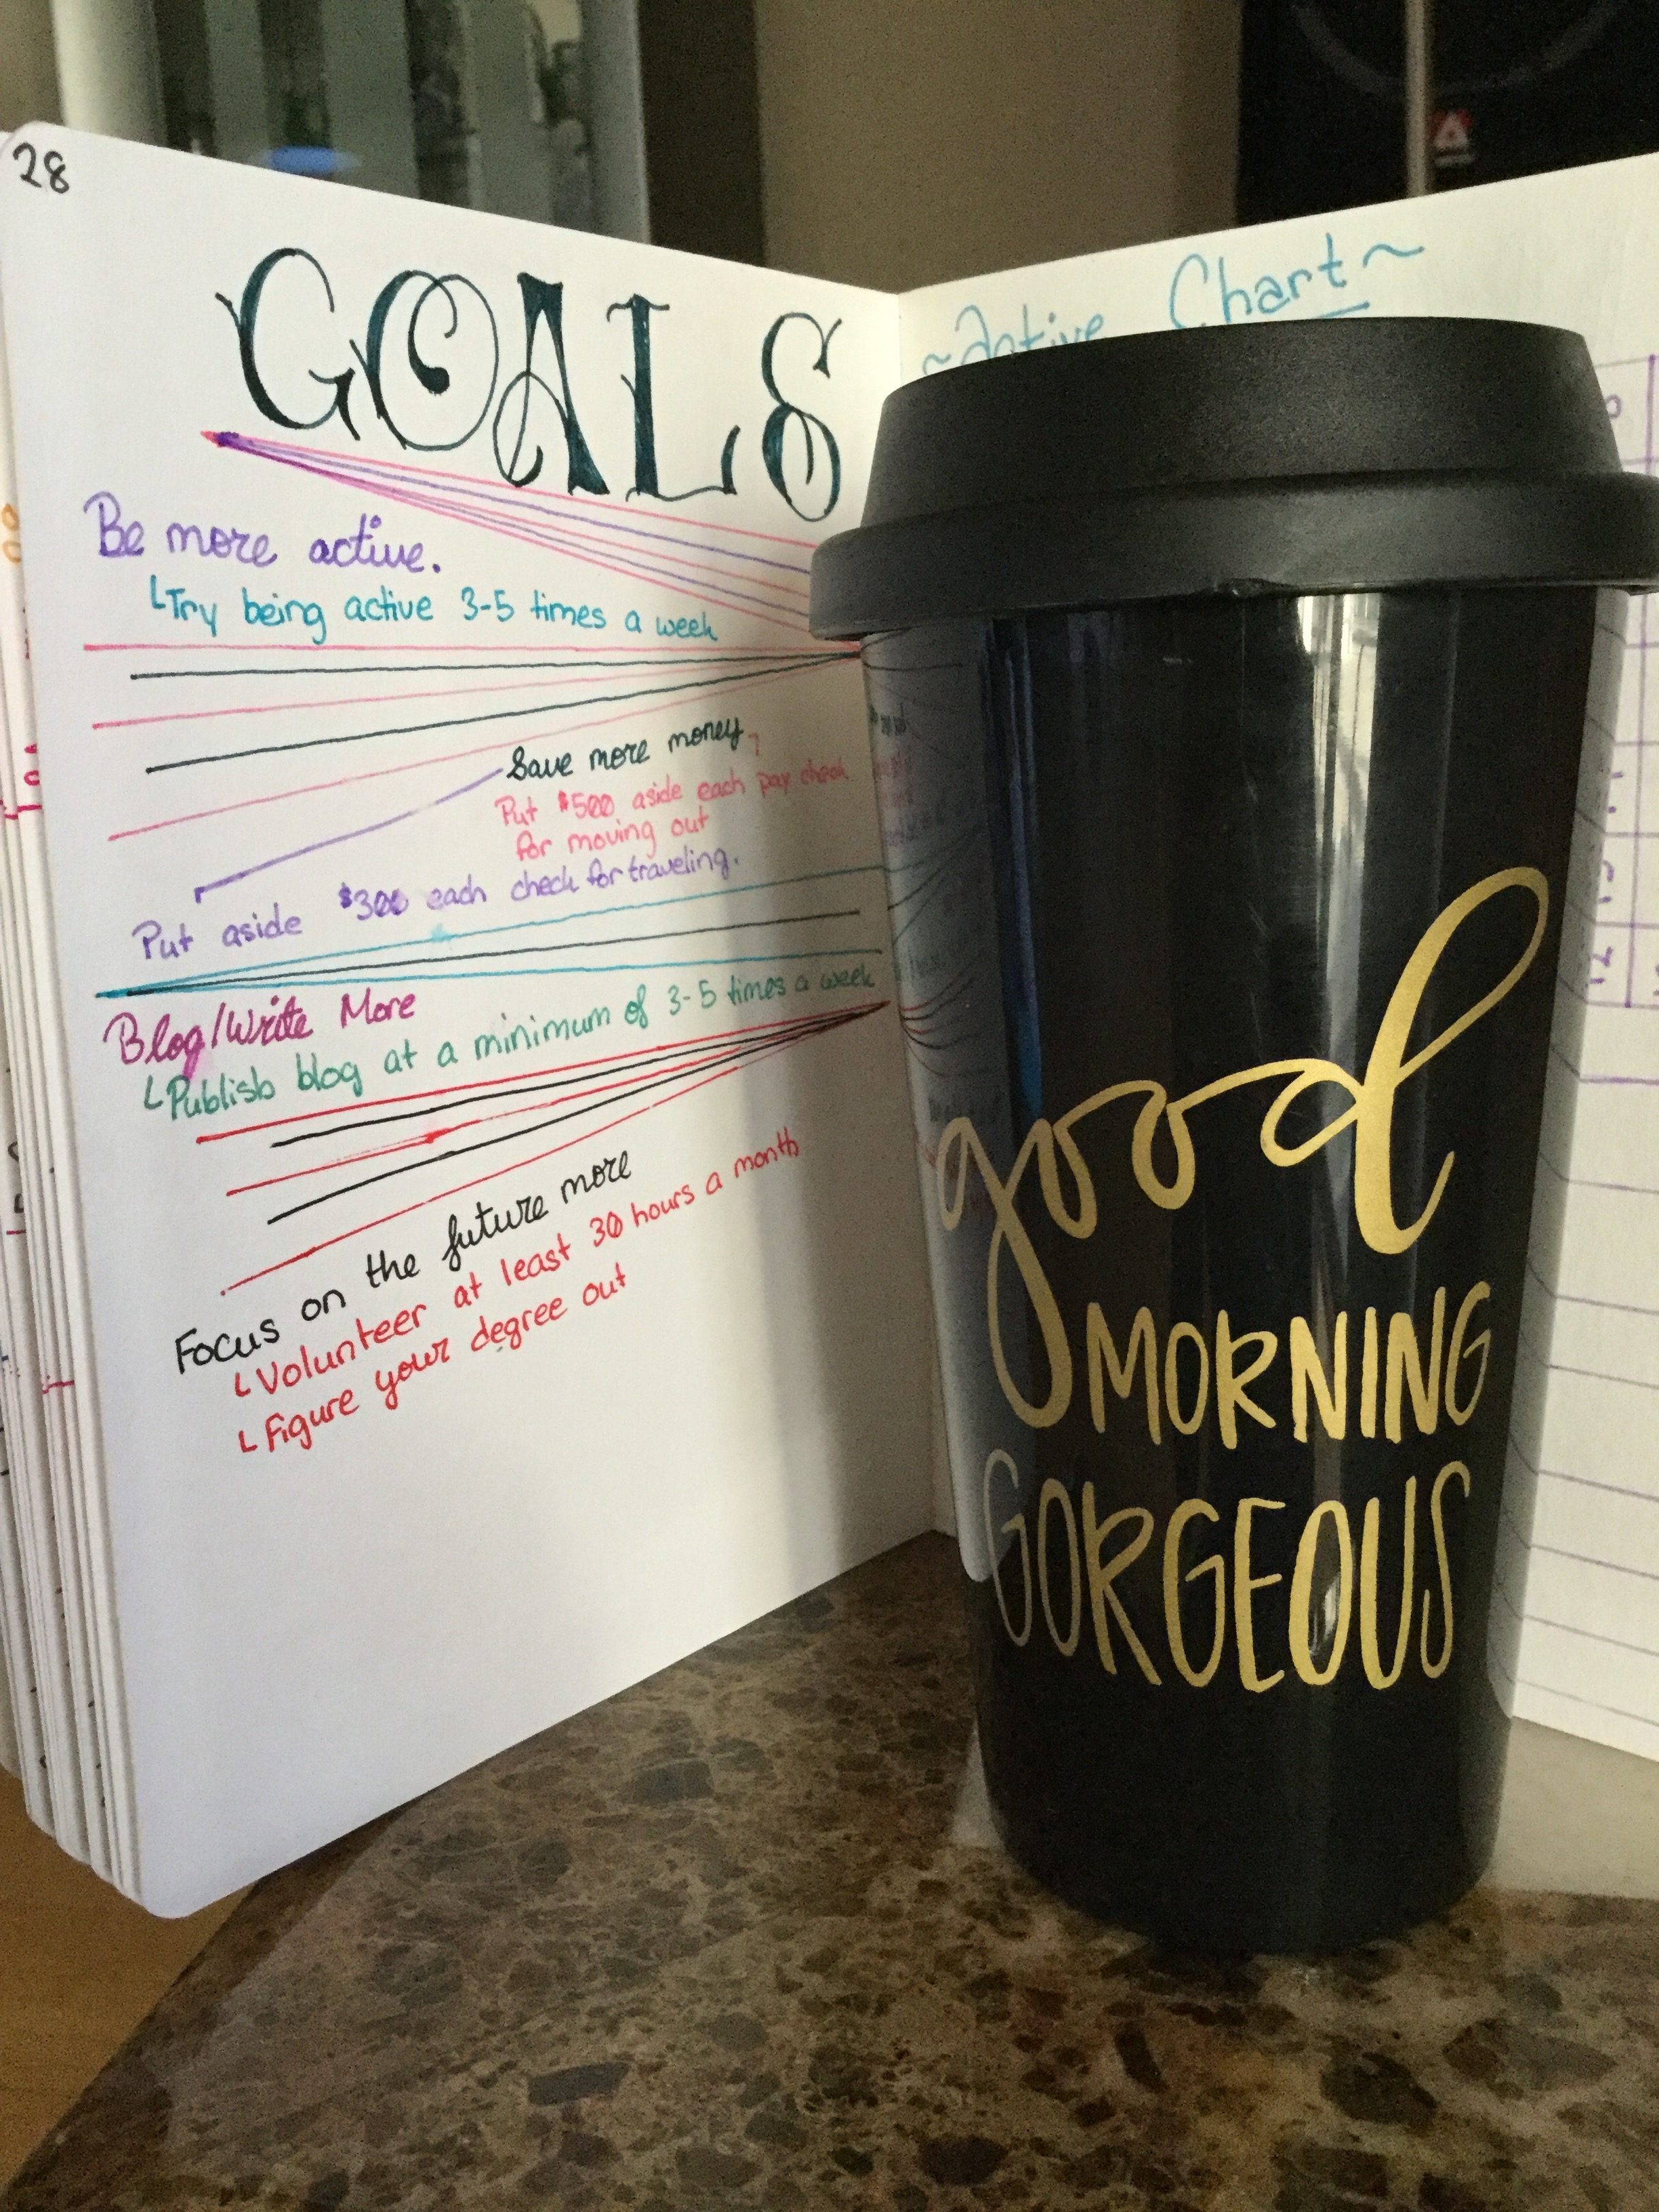 28
GOALS
Be more active.
Try being active 3-5 times a week
Save more money
Put $500 aside each pay check
for moving out
Put aside $300 each check for traveling.
Blog/Write More
Publish blog at a minimum of 3-5 times a week
Focus on the future more
Volunteer at least 30 hours a month
Figure your degree out
~Active Chart~
good
MORNING
GORGEOUS